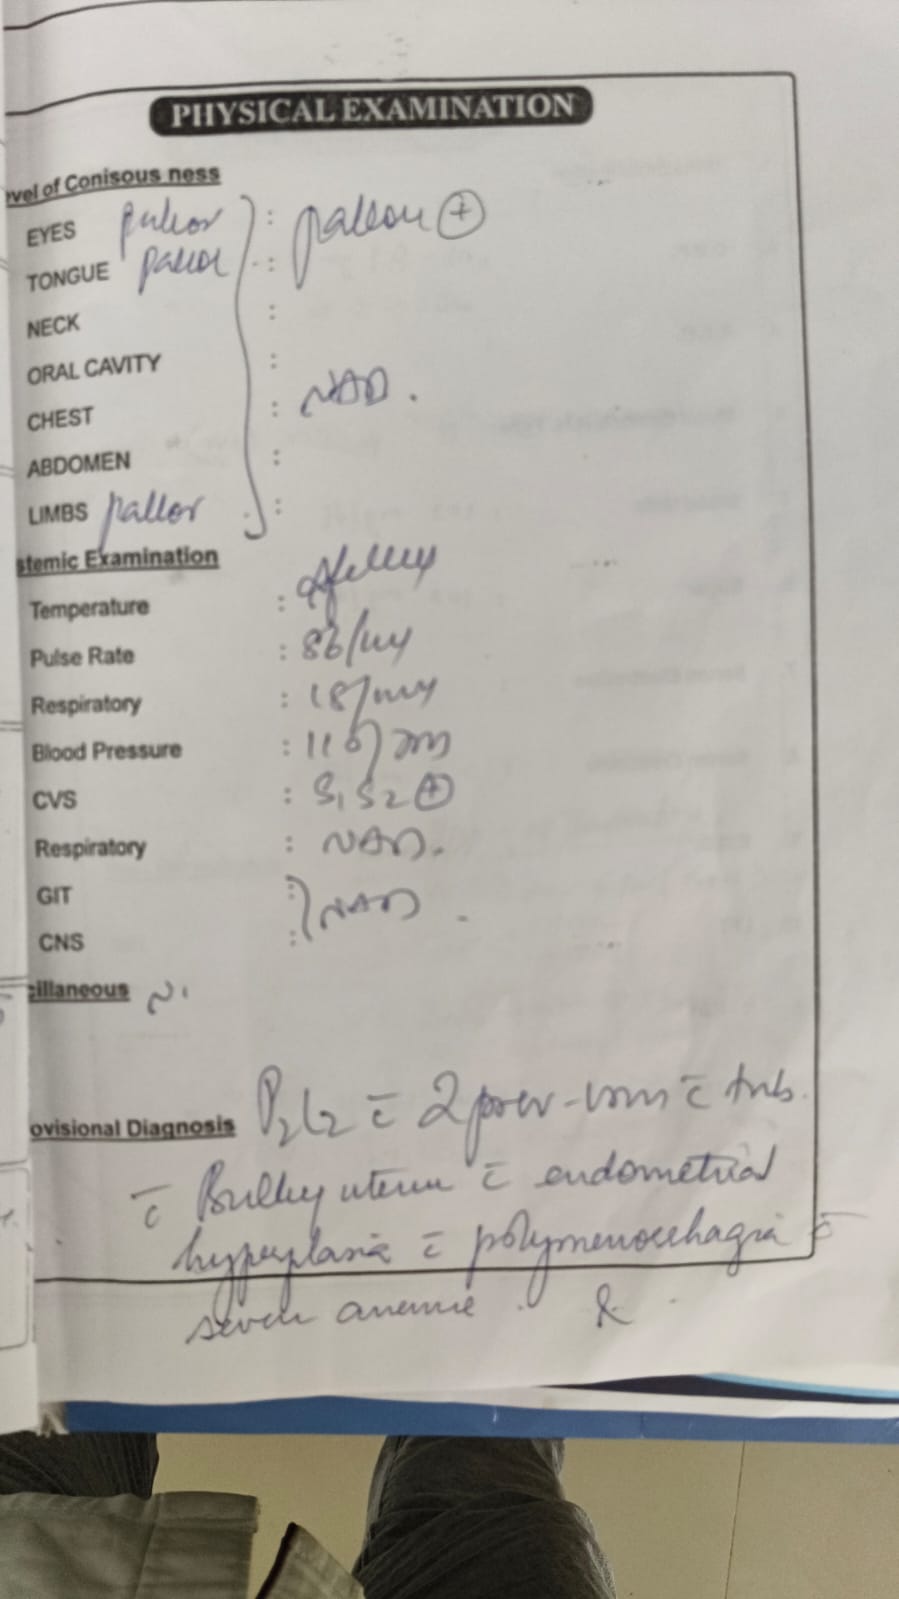 PHYSICAL EXAMINATION
evel of Conisous ness
EYES pallor : pallor +
TONGUE pallor :
NECK :
ORAL CAVITY :
CHEST : NAD.
ABDOMEN :
LIMBS pallor :
stemic Examination
Temperature :
Pulse Rate :
Respiratory : 18/
Blood Pressure : 110/
CVS : S1S2 +
Respiratory : NAD.
GIT : NAD
CNS :
cillaneous
ovisional Diagnosis P2L2 c̄ 2 prev c̄
c̄ Bulky uterus c̄ endometrial
hyperplasia c̄ polymenorrhagia c̄
severe anemia.